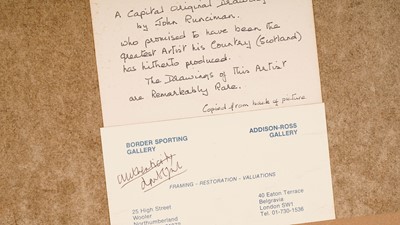 A Capital Original Drawing
by John Runciman.
who promised to have been the
greatest Artist his Country (Scotland)
has hitherto produced.
The Drawings of this Artist
are Remarkably Rare.
Copied from back of picture
BORDER SPORTING
GALLERY
ADDISON-ROSS
GALLERY
FRAMING - RESTORATION - VALUATIONS
25 High Street
Wooler
Northumberland
40 Eaton Terrace
Belgravia
London SW1
Tel. 01-730-1536